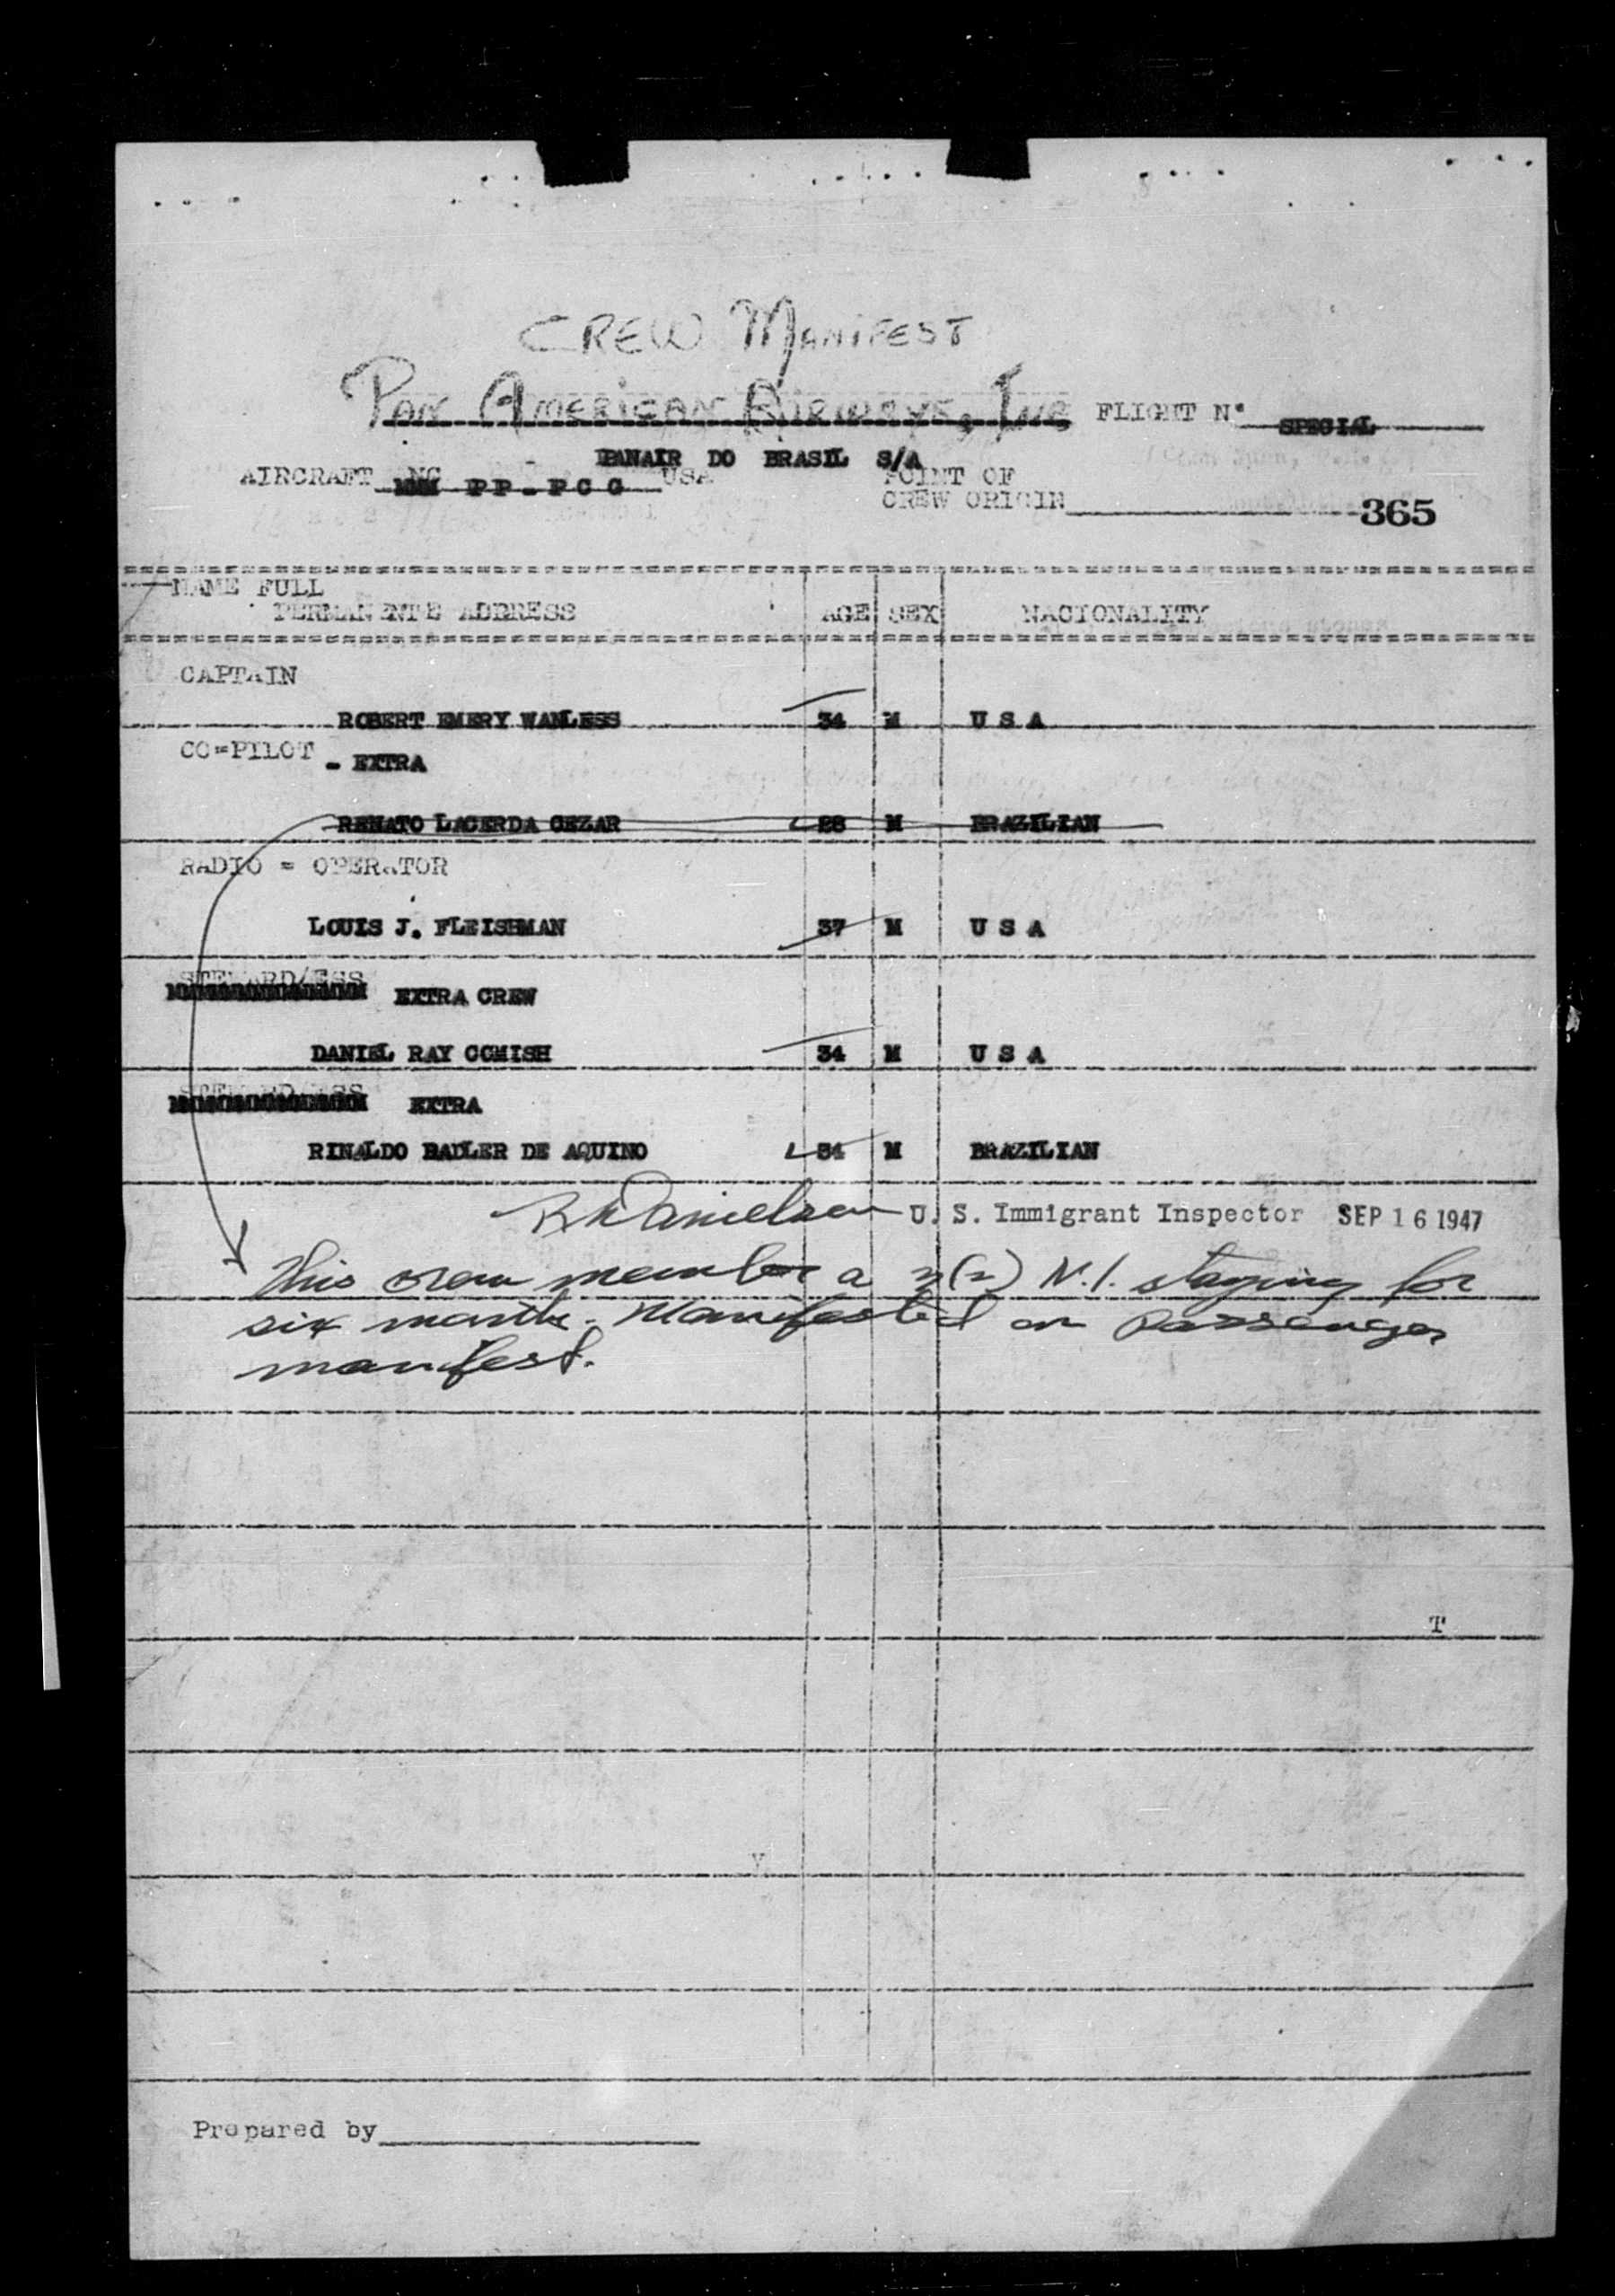 CREW MANIFEST
PAN AMERICAN AIRWAYS, INC FLIGHT Nº SPECIAL
PANAIR DO BRASIL S/A
AIRCRAFT NC PP-PCG USA POINT OF
CREW ORIGIN 365
NAME FULL
PERMANENTE ADDRESS AGE SEX NACIONALITY
CAPTAIN
ROBERT EMERY WANLESS 34 M U S A
CO=PILOT - EXTRA
RENATO LACERDA CEZAR 28 M BRAZILIAN
RADIO = OPERATOR
LOUIS J. FLEISHMAN 37 M U S A
STEWARD/ESS
EXTRA CREW
DANIEL RAY COMISH 34 M U S A
STEWARD/ESS
EXTRA
RINALDO RADLER DE AQUINO 34 M BRAZILIAN
Danielson U. S. Immigrant Inspector SEP 16 1947
This crew member a 3(2) N.I. staying for
six months. Manifested on Passenger
manifest.
T
Y
Prepared by